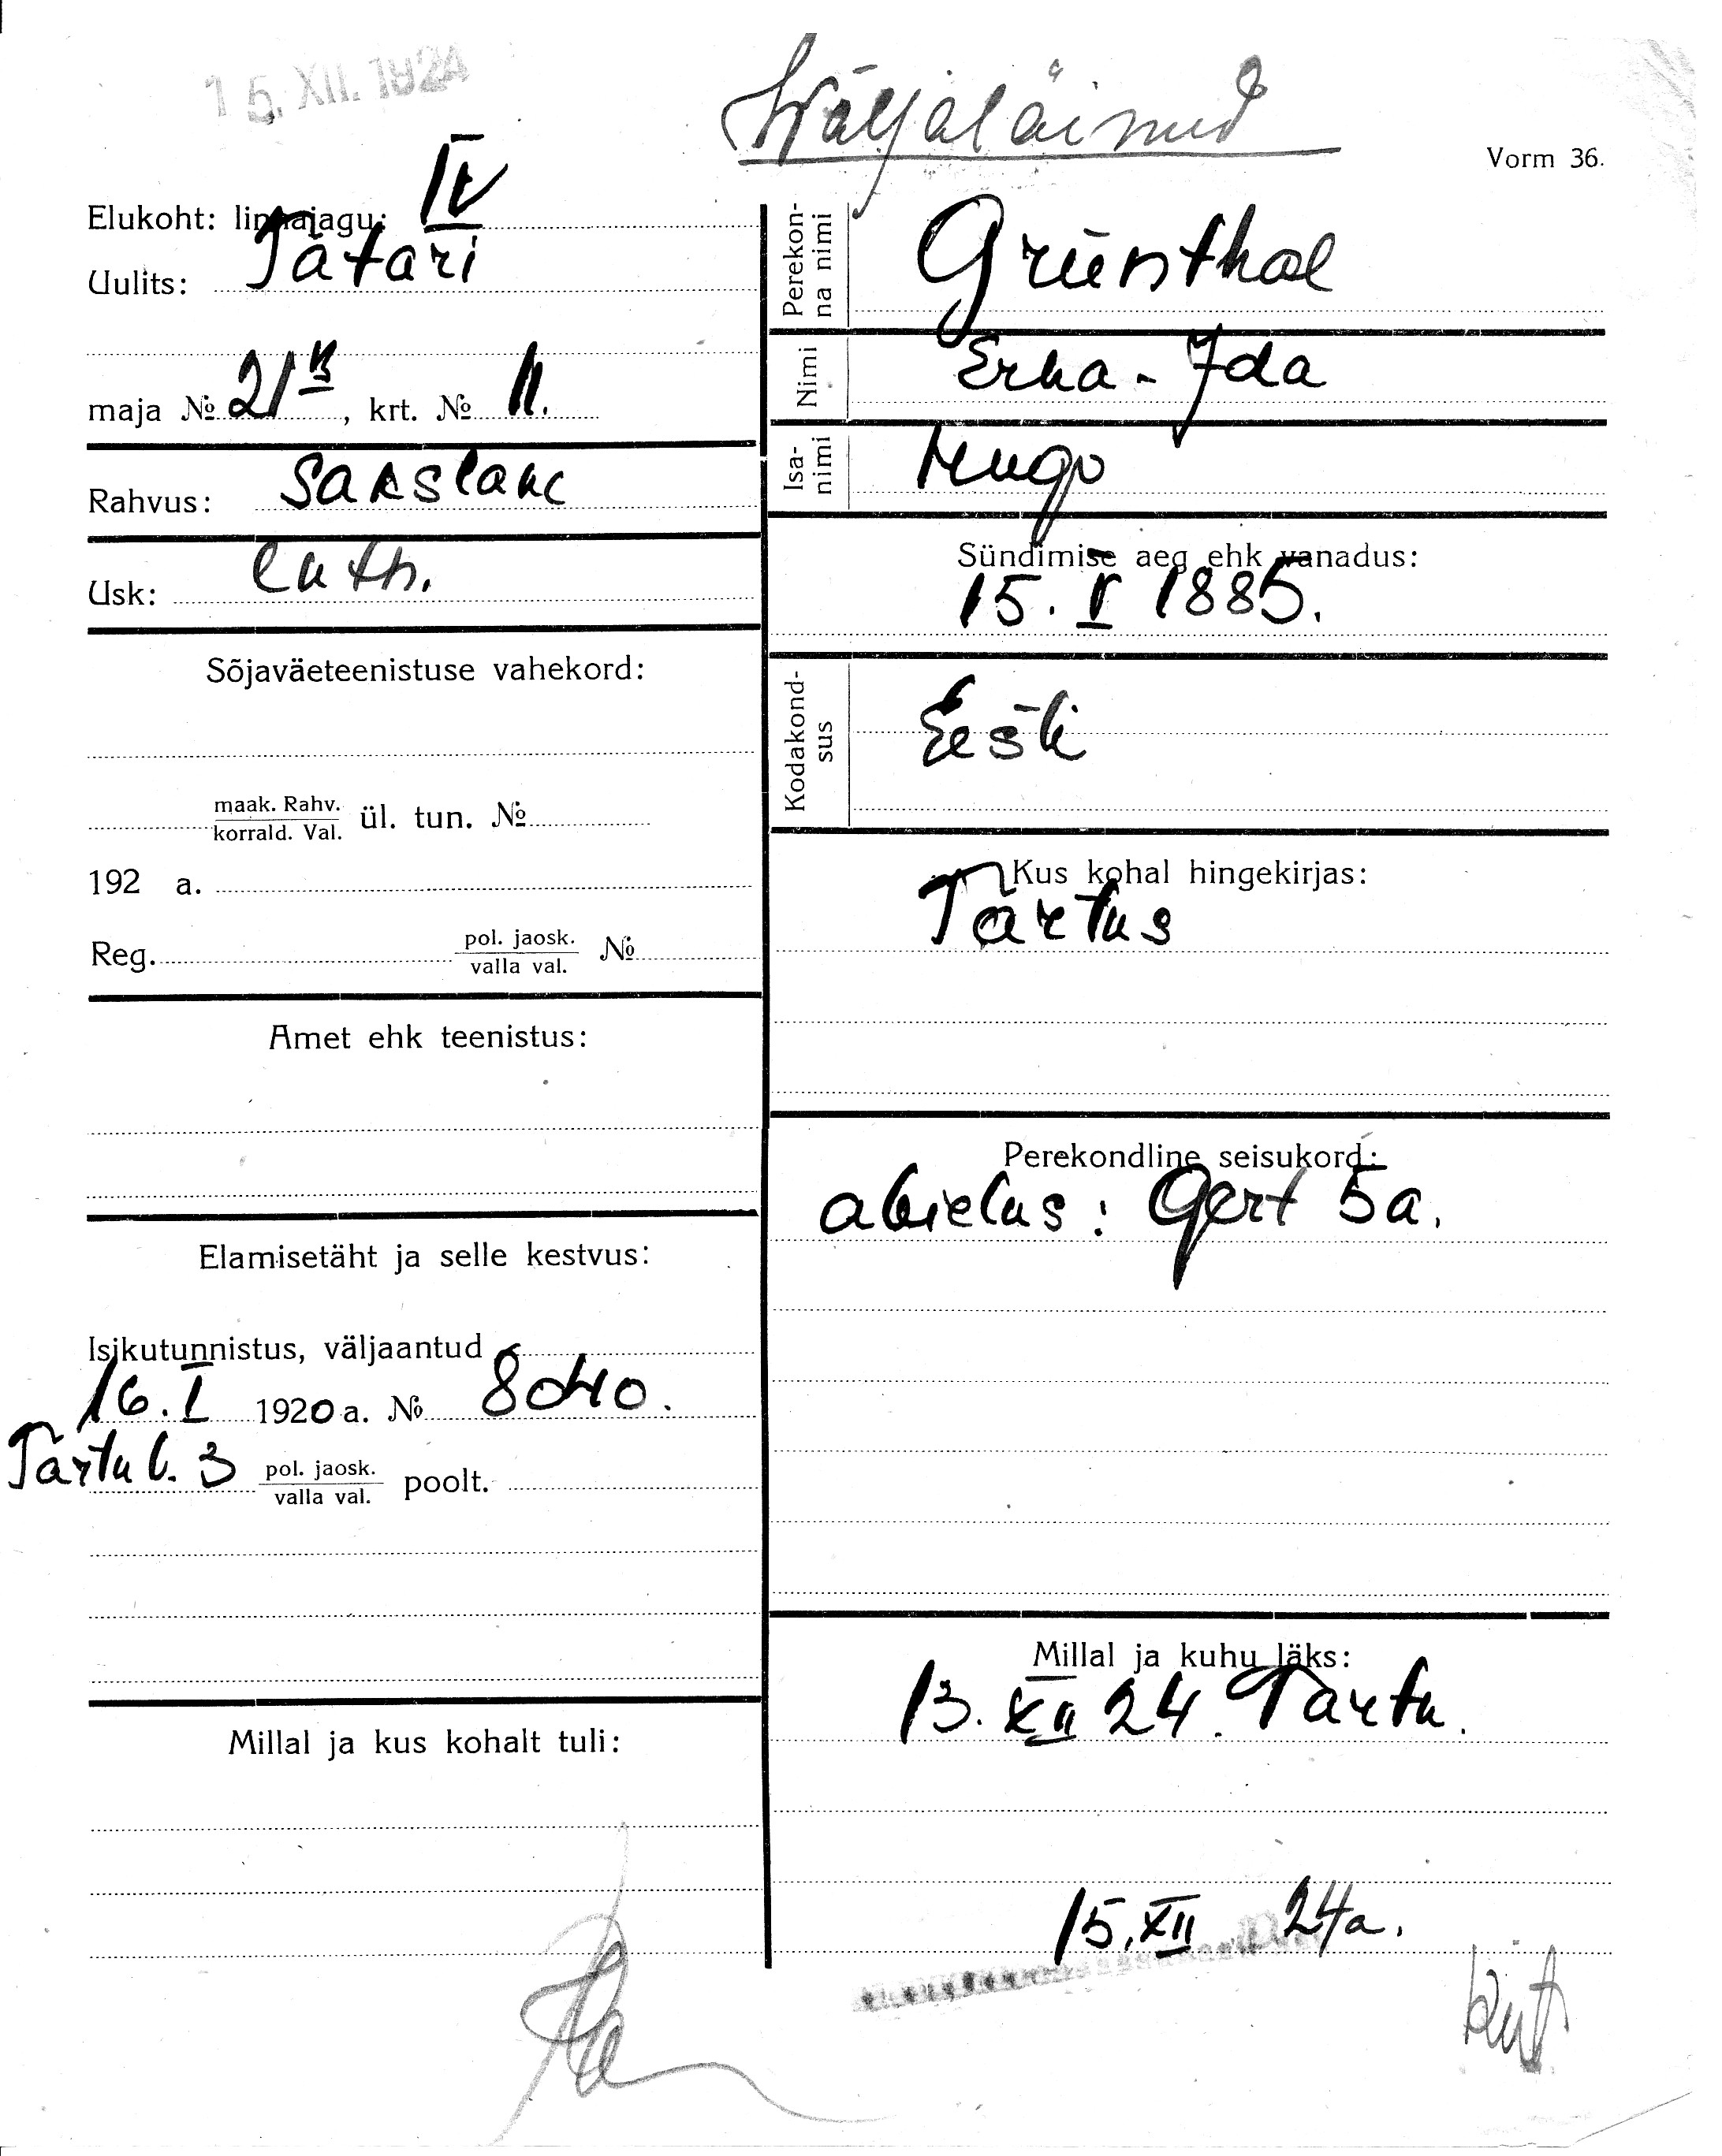 15. XII. 1924
Wäljaläinud
Vorm 36.
Elukoht: linnajagu: IV
Uulits: Tatari
maja № 21 B, krt. № 11.
Rahvus: Sakslane
Usk: luth.
Sõjaväeteenistuse vahekord:
maak. Rahv.
korrald. Val. ül. tun. №
192 a.
Reg. pol. jaosk. №
valla val.
Amet ehk teenistus:
Elamisetäht ja selle kestvus:
Isikutunnistus, väljaantud
16. I 1920 a. № 8040.
Tartu l. 3 pol. jaosk. poolt.
valla val.
Millal ja kus kohalt tuli:
Perekon-
na nimi Grünthal
Nimi Erna-Ida
Isa-
nimi Hugo
Sündimise aeg ehk vanadus:
15. V 1885.
Kodakond-
sus Eesti
Kus kohal hingekirjas:
Tartus
Perekondline seisukord:
abielus: Gert 5 a.
Millal ja kuhu läks:
13. XII 24. Tartu.
15. XII 24 a.